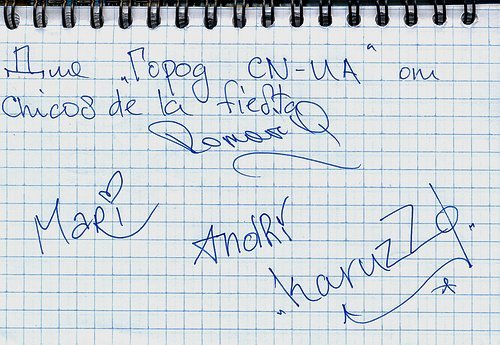 Для "Город CN-UA" от
Chicos de la fiesta
Roman
Mari
Andri
"KaruzZo"